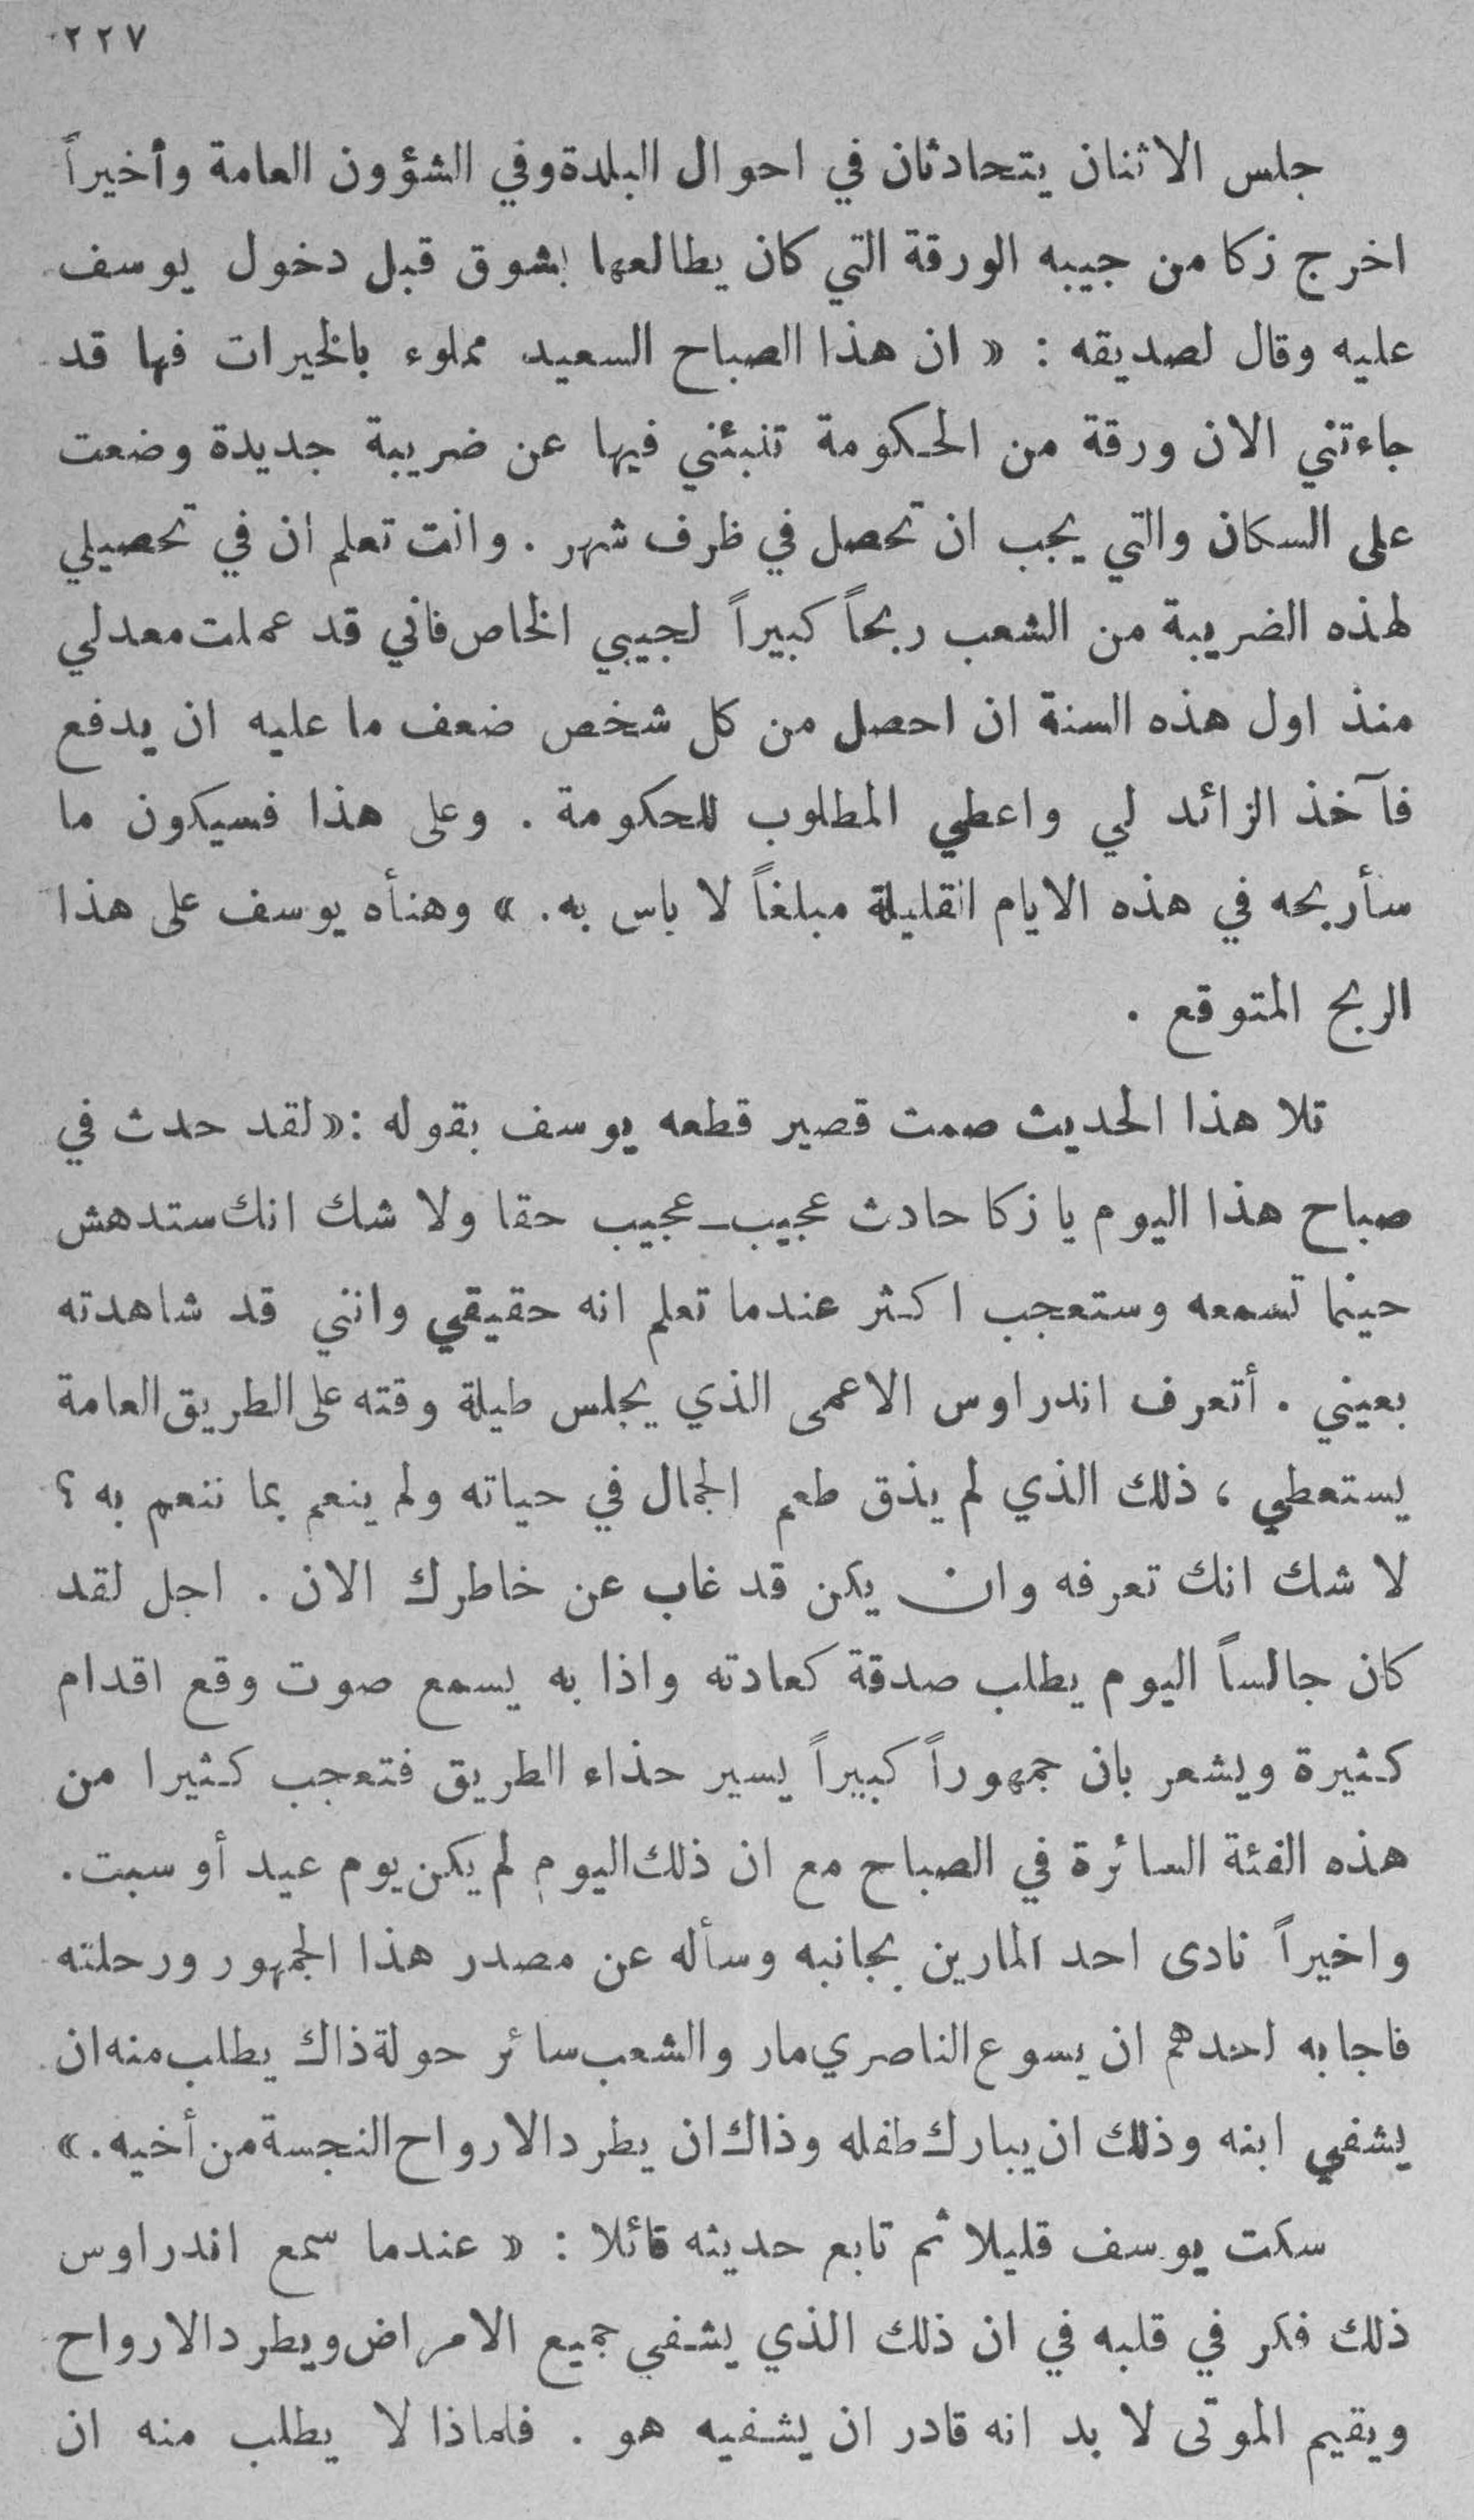 ٢٢٧
جلس الاثنان يتحادثان في احوال البلدة وفي الشؤون العامة وأخيراً
اخرج زكا من جيبه الورقة التي كان يطالعها بشوق قبل دخول يوسف
عليه وقال لصديقه : « ان هذا الصباح السعيد مملوء بالخيرات فها قد
جاءتني الان ورقة من الحكومة تنبئني فيها عن ضريبة جديدة وضعت
على السكان والتي يجب ان تحصل في ظرف شهر . وانت تعلم ان في تحصيلي
لهذه الضريبة من الشعب ربحاً كبيراً لجيبي الخاص فاني قد عملت معدلي
منذ اول هذه السنة ان احصل من كل شخص ضعف ما عليه ان يدفع
فآخذ الزائد لي واعطي المطلوب للحكومة . وعلى هذا فسيكون ما
سأربحه في هذه الايام القليلة مبلغاً لا باس به. » وهنأه يوسف على هذا
الربح المتوقع .
تلا هذا الحديث صمت قصير قطعه يوسف بقوله :« لقد حدث في
صباح هذا اليوم يا زكا حادث عجيب ـ عجيب حقا ولا شك انك ستدهش
حينما تسمعه وستعجب اكثر عندما تعلم انه حقيقي وانني قد شاهدته
بعيني . أتعرف اندراوس الاعمى الذي يجلس طيلة وقته على الطريق العامة
يستعطي ، ذلك الذي لم يذق طعم الجمال في حياته ولم ينعم بما ننعم به ؟
لا شك انك تعرفه وان يكن قد غاب عن خاطرك الان . اجل لقد
كان جالساً اليوم يطلب صدقة كعادته واذا به يسمع صوت وقع اقدام
كثيرة ويشعر بان جمهوراً كبيراً يسير حذاء الطريق فتعجب كثيرا من
هذه الفئة السائرة في الصباح مع ان ذلك اليوم لم يكن يوم عيد أو سبت.
واخيراً نادى احد المارين بجانبه وسأله عن مصدر هذا الجمهور ورحلته
فاجابه احدهم ان يسوع الناصري مار والشعب سائر حولة ذاك يطلب منه ان
يشفي ابنه وذلك ان يبارك طفله وذاك ان يطرد الارواح النجسة من أخيه. »
سكت يوسف قليلا ثم تابع حديثه قائلا : « عندما سمع اندراوس
ذلك فكر في قلبه في ان ذلك الذي يشفي جميع الامراض ويطرد الارواح
ويقيم الموتى لا بد انه قادر ان يشفيه هو . فلماذا لا يطلب منه ان